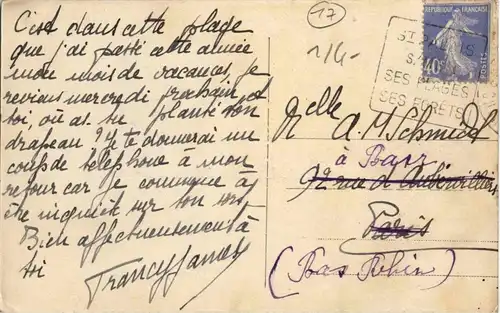 C'est dans cette plage
que j'ai passé cette année
mon mois de vacances, je
reviens mercredi prochain et
toi, où as tu planté ton
drapeau ? Je te donnerai un
coup de téléphone à mon
retour car je commence à
être inquiet sur ton sort
Bien affectueusement à
toi
Francy James
17
1/-
REPUBLIQUE FRANÇAISE
40c
POSTES
ST
SES PLAGES
SES FORETS
Melle A. M Schmidt
à Barr
92 rue d'Aubervilliers
Paris
(Bas Rhin)